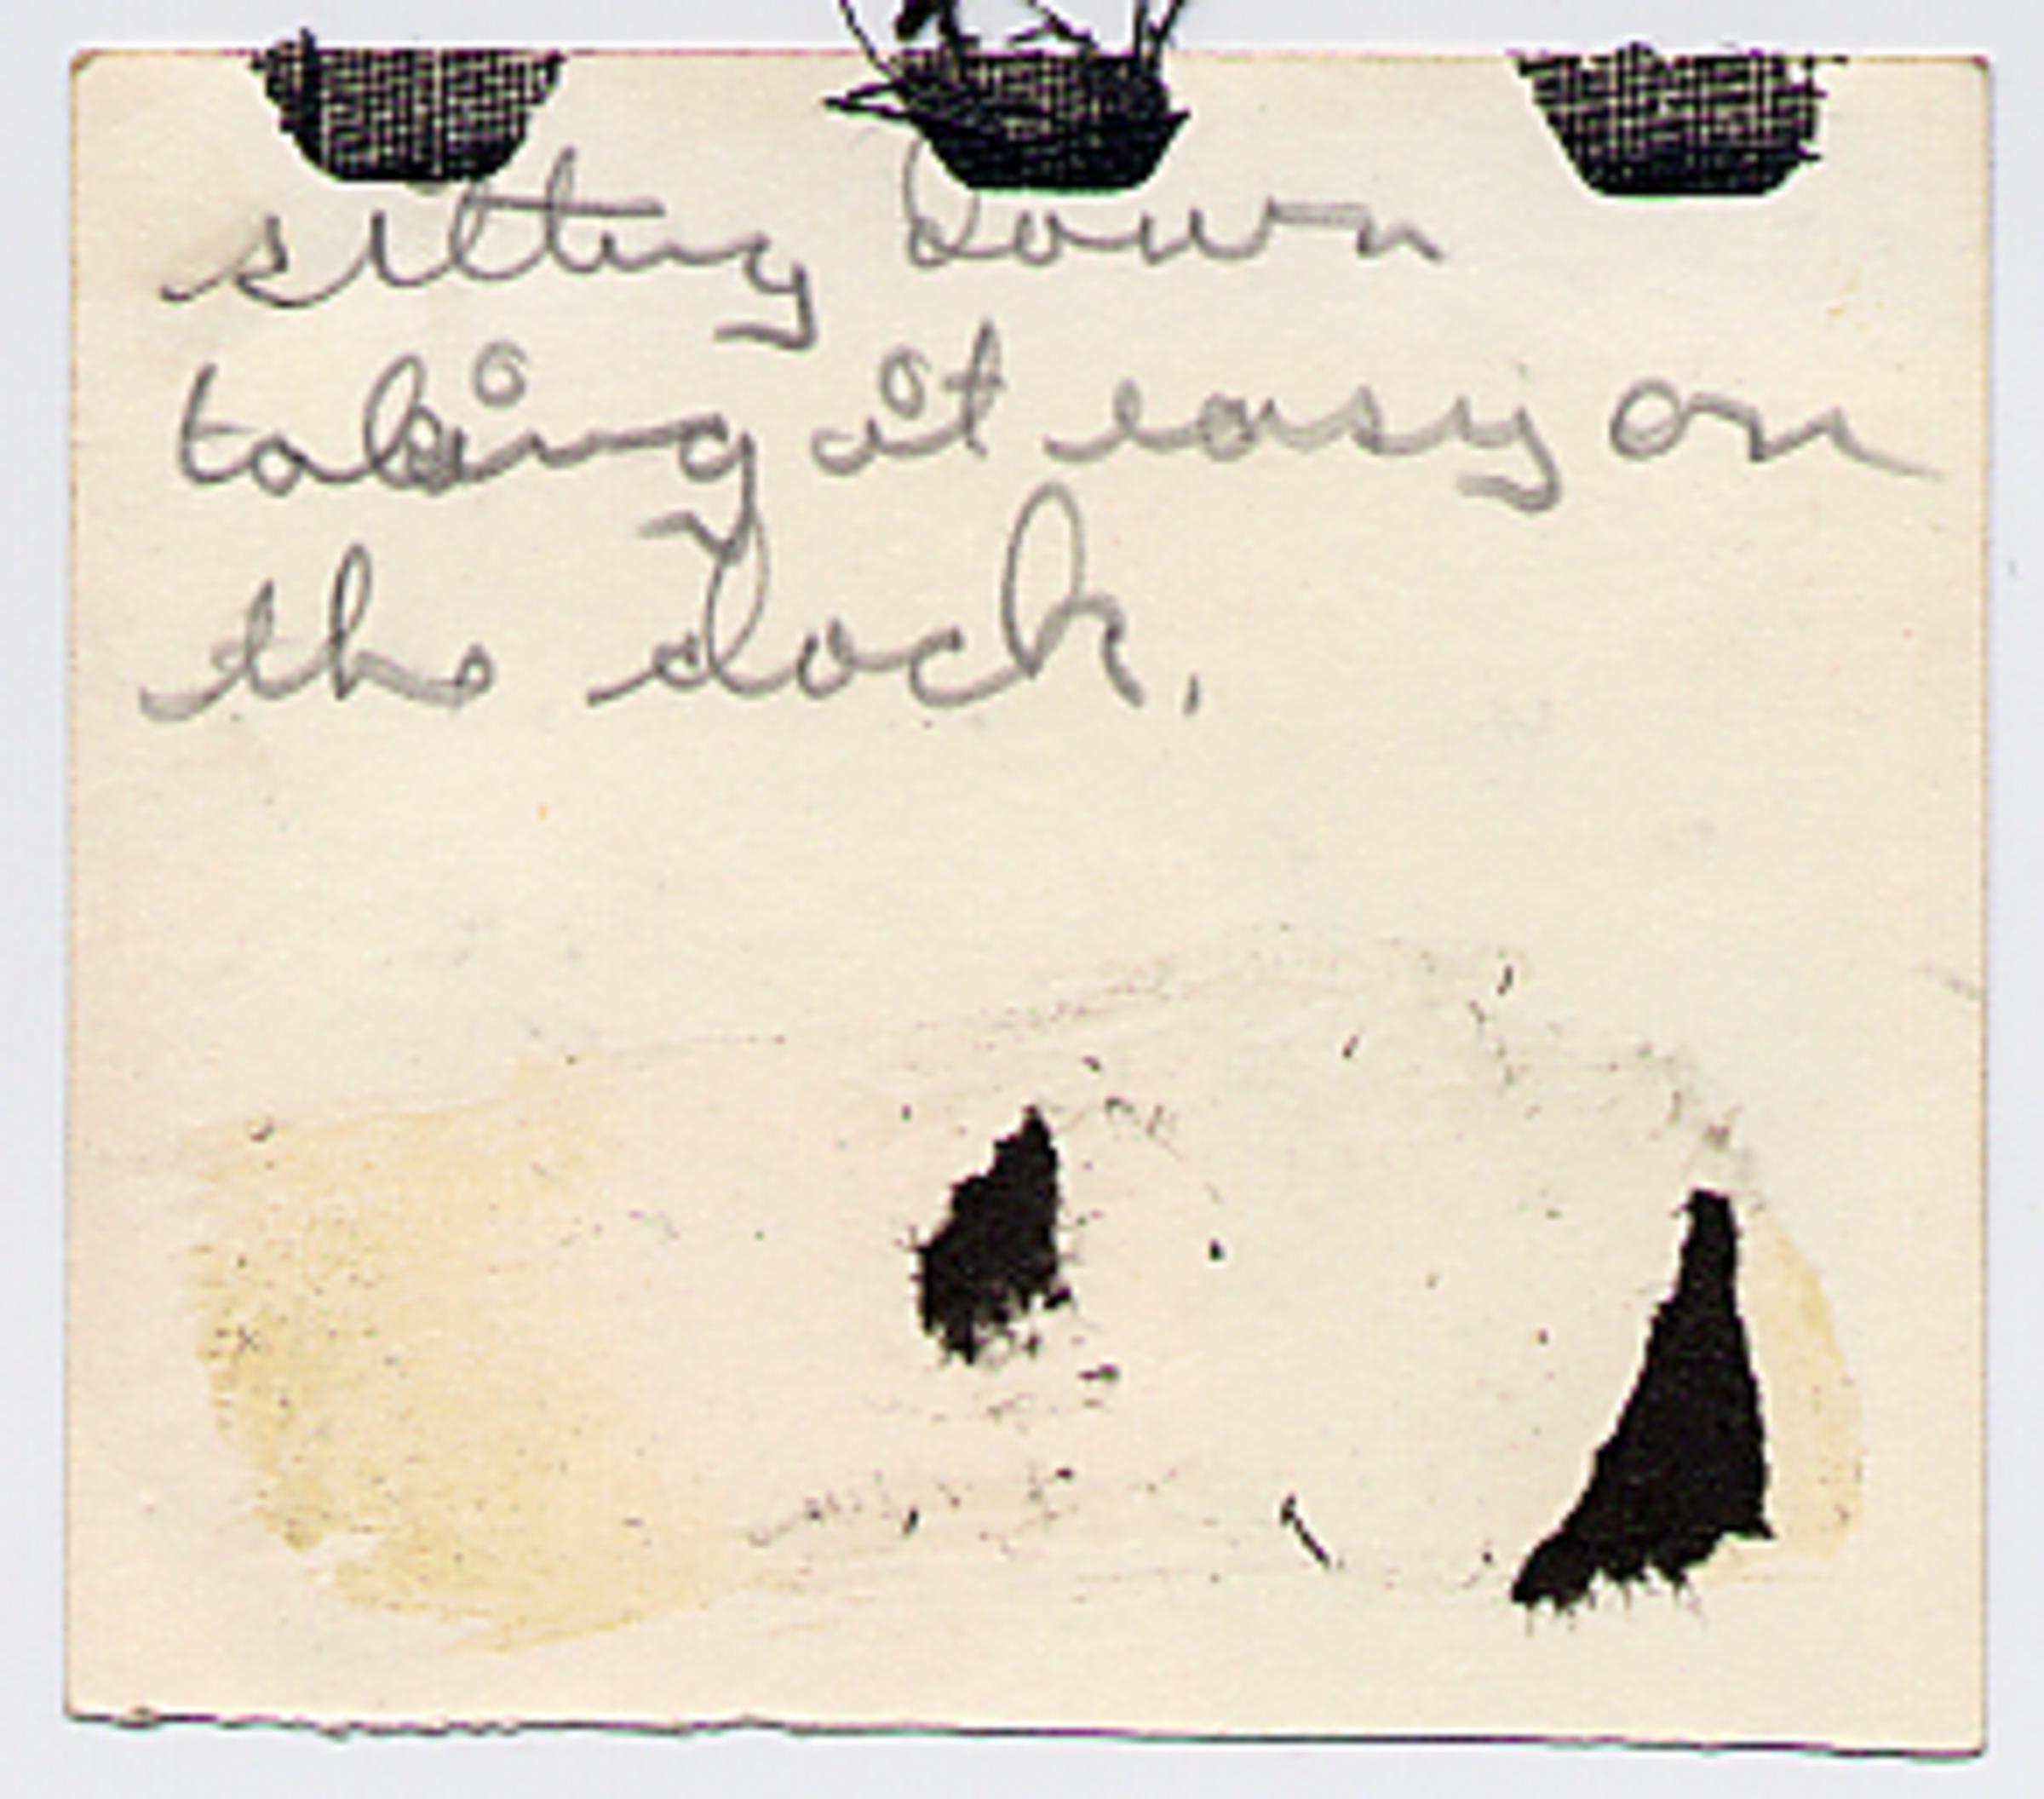 sitting down
taking it easy on
the dock.